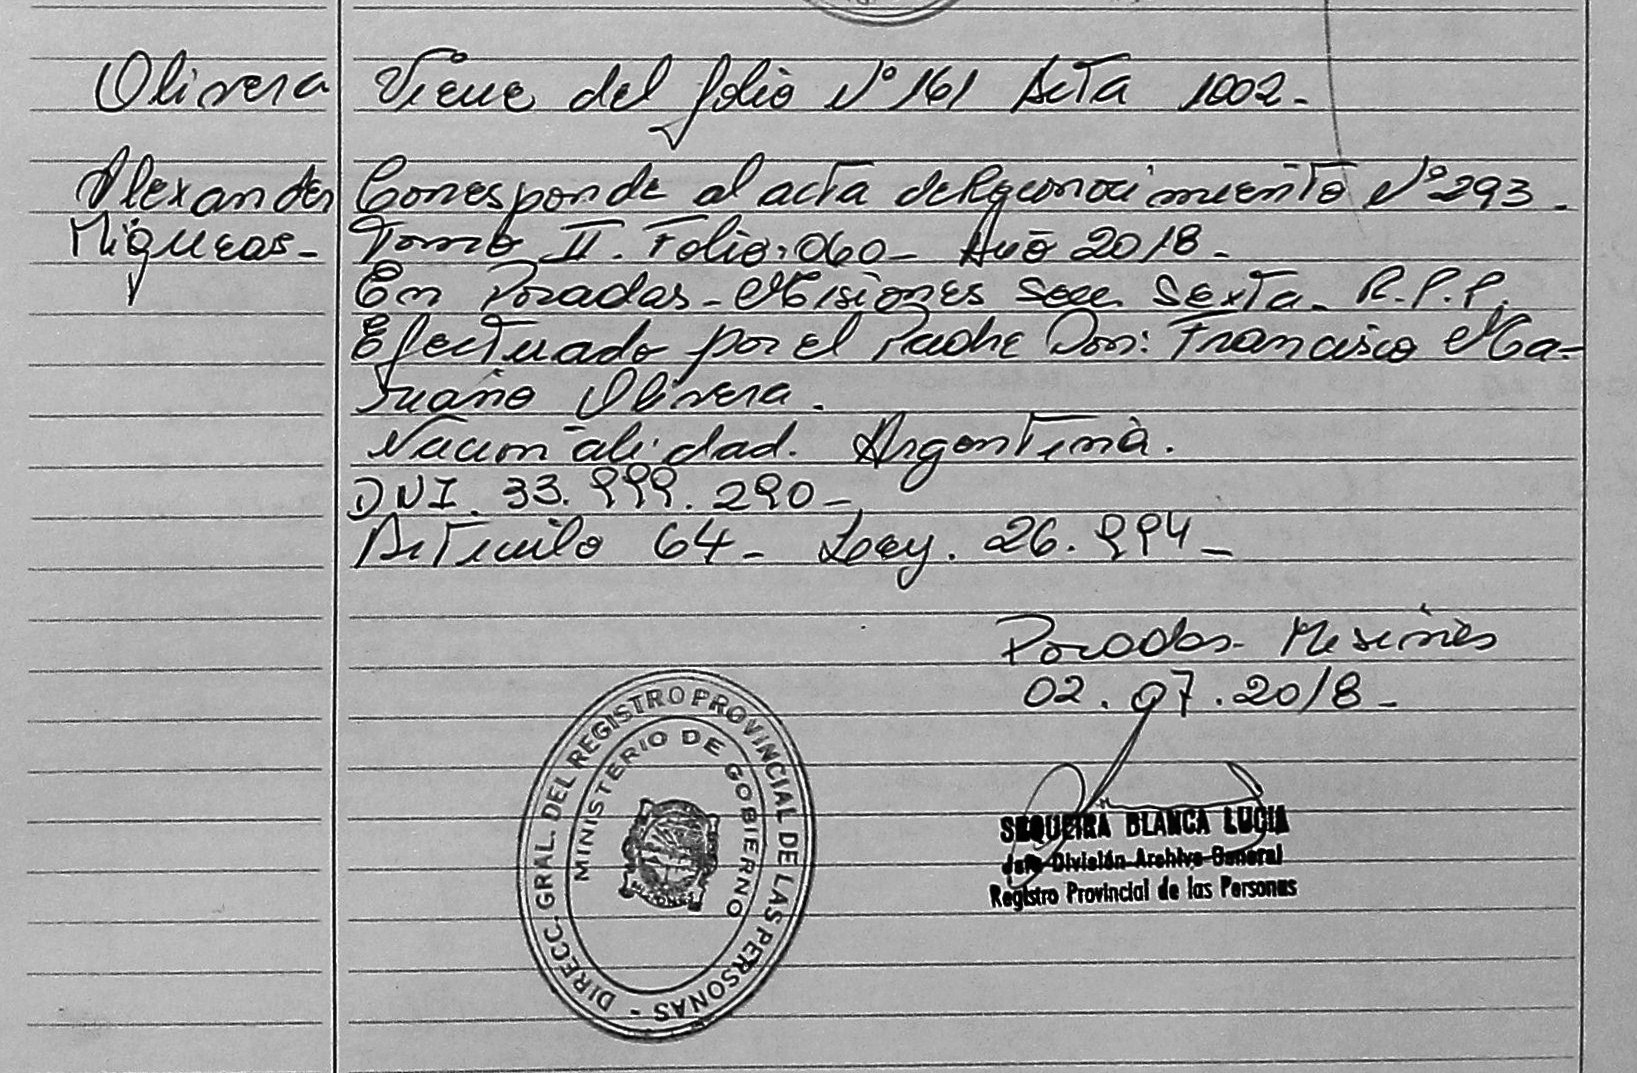 Olivera
Alexander
Miqueas-
Viene del folio N° 161 Acta 1002-
Corresponde al acta de Reconocimiento N° 293-
Tomo II. Folio: 060- Año 2018-
En Posadas- Misiones Secc Sexta- R.P.P.
Efectuado por el Padre Don: Francisco Ma-
Olivera.
Nacionalidad. Argentina.
DNI. 33.999.290-
Articulo 64- Ley. 26.994-
Posadas- Misiones
02.07.2018-
SEQUEIRA BLANCA LUCIA
Jefe División Archivo General
Registro Provincial de las Personas
DIRECC. GRAL. DEL REGISTRO PROVINCIAL DE LAS PERSONAS -
MINISTERIO DE GOBIERNO